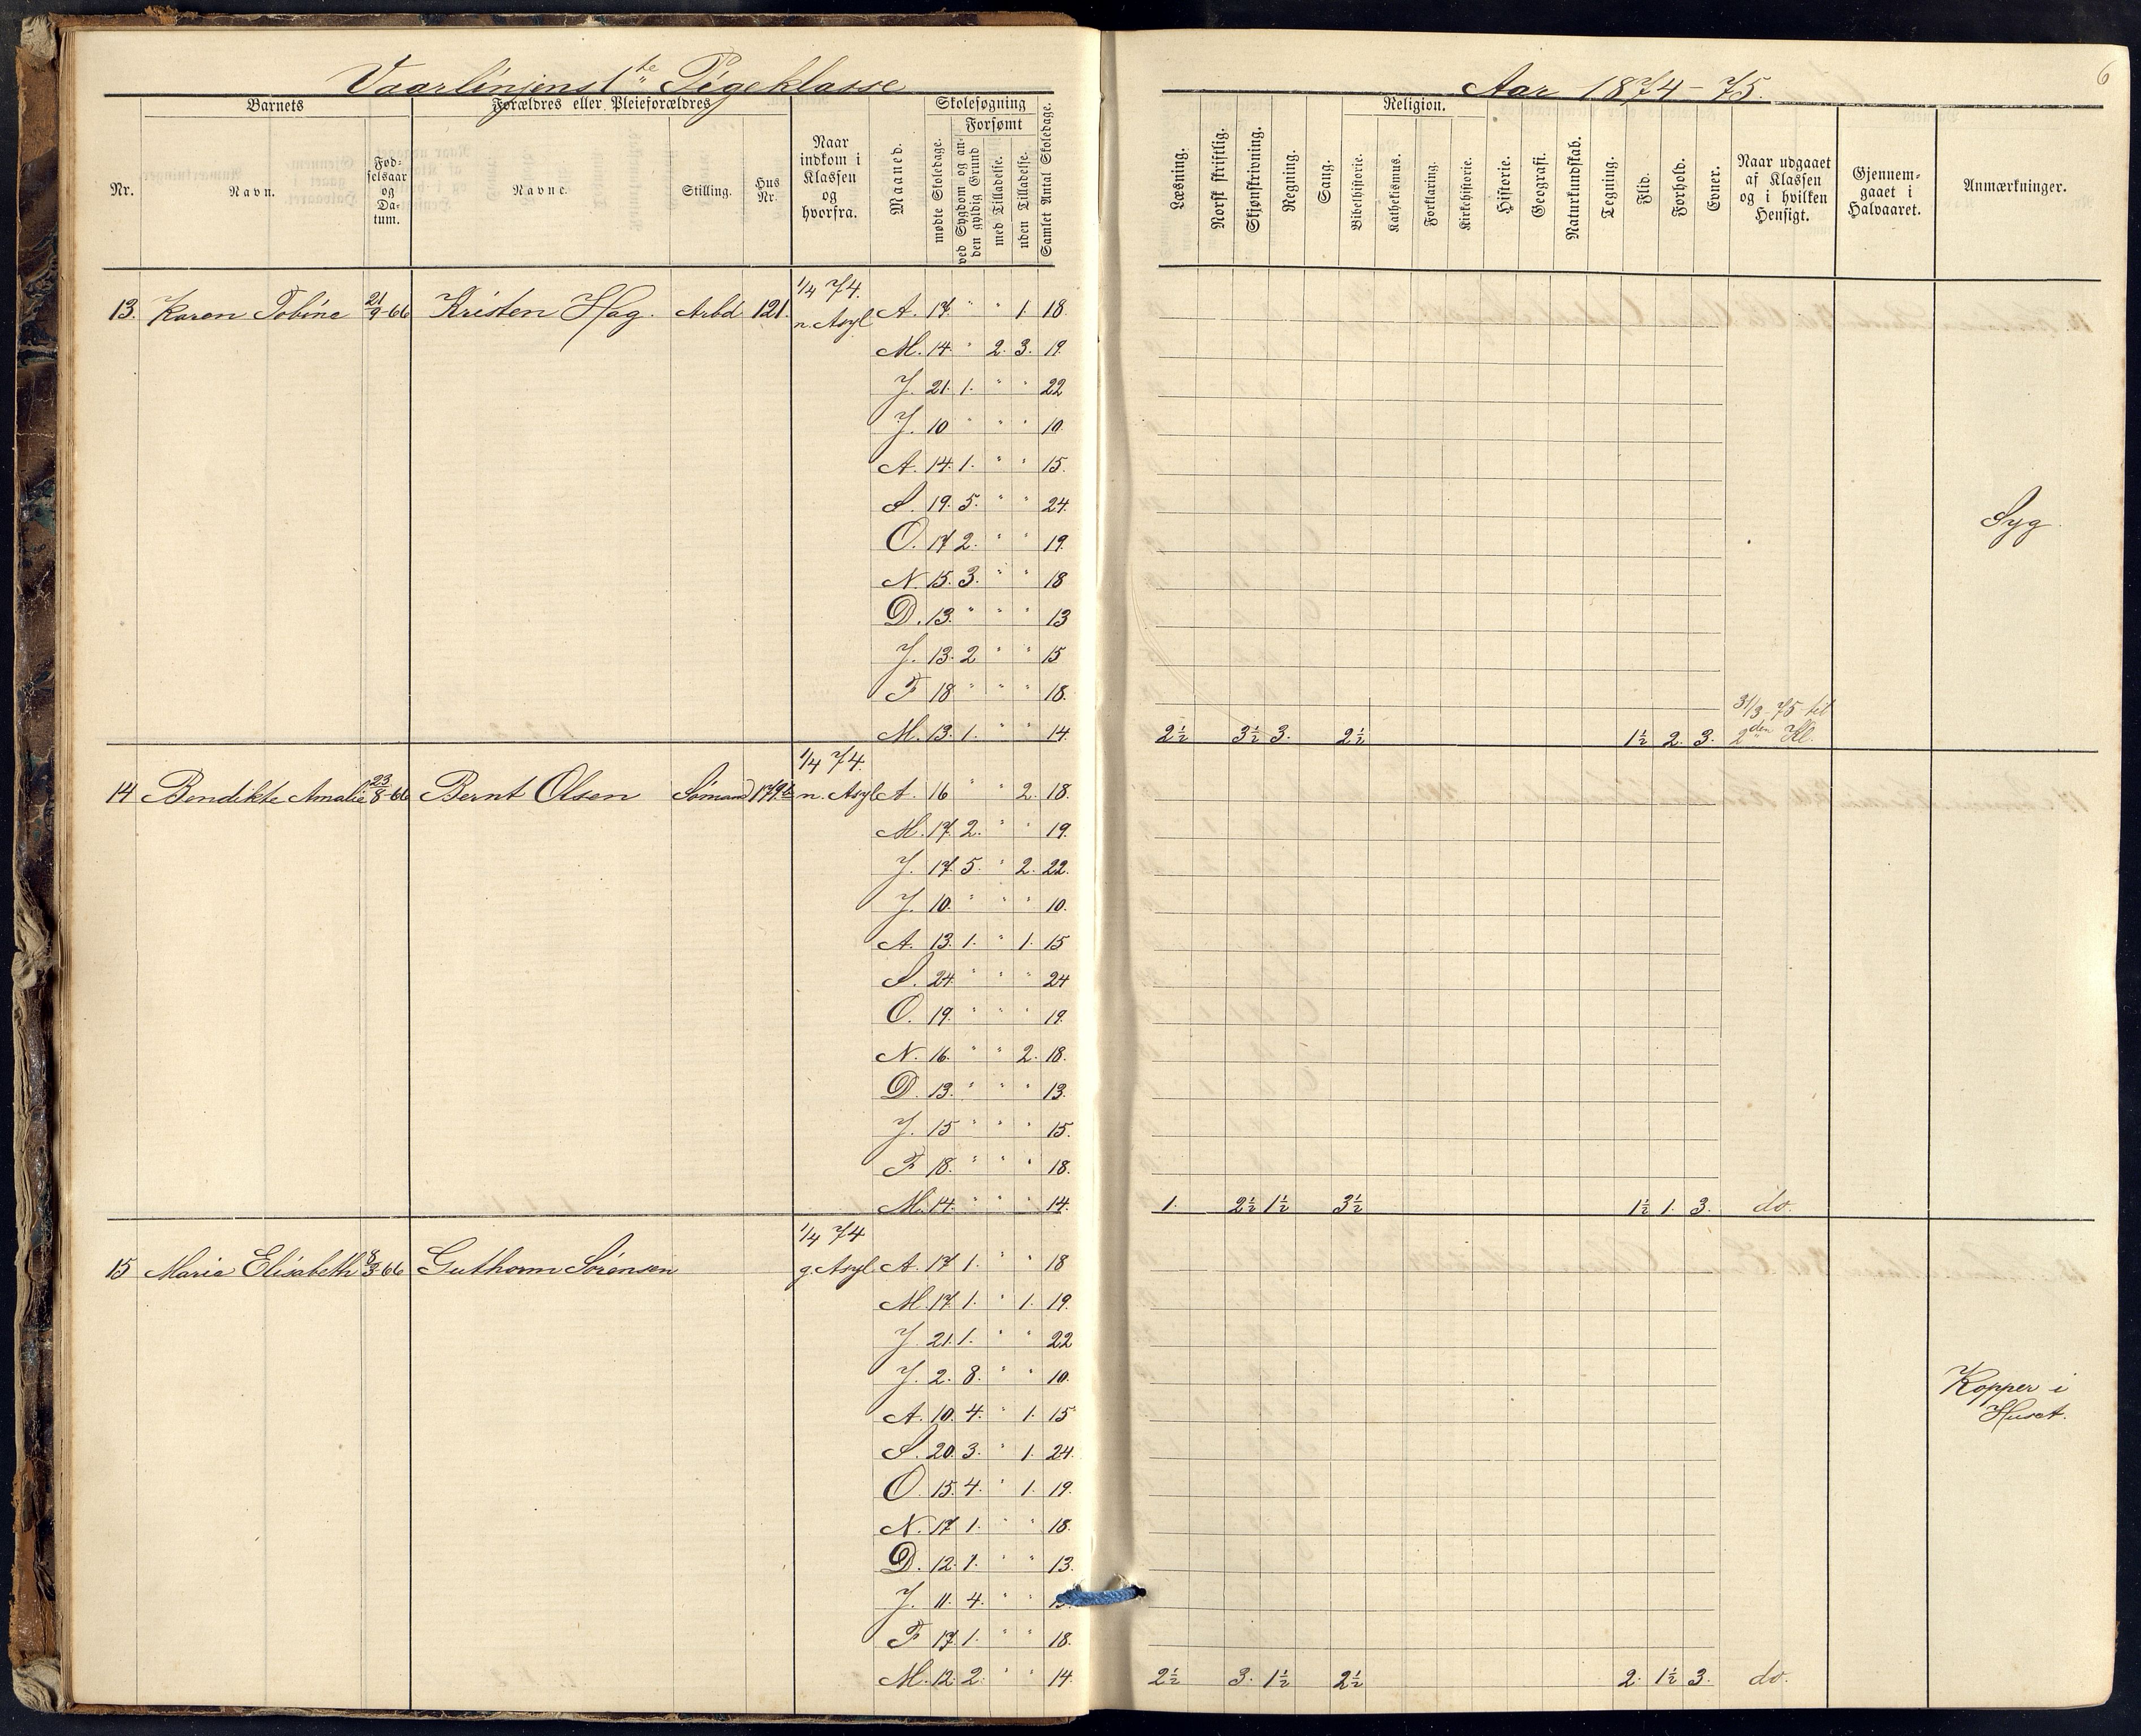 Vaarlinjens 1ste Pigeklasse
Aar 1874-75.
6
Barnets
Forældres eller Pleieforældres
Naar indkom i Klassen og hvorfra.
Maaned.
Skolesøgning
Forsømt
Nr.
Navn.
Fødselsaar og Datum.
Navne.
Stilling.
Hus Nr.
mødte Skoledage.
ved Sygdom og anden gyldig Grund
med Tilladelse.
uden Tilladelse.
Samlet Antal Skoledage.
Læsning.
Norsk skriftlig.
Skjønskrivning.
Regning.
Sang.
Religion.
Bibelhistorie.
Kathekismus.
Forklaring.
Kirkehistorie.
Historie.
Geografi.
Naturkundskab.
Tegning.
Flid.
Forhold.
Evner.
Naar udgaaet af Klassen og i hvilken Hensigt.
Gjennemgaaet i Halvaaret.
Anmærkninger.
1/4 74.
13. Karen Tobine 21/9-66 Kristen Hag. Arbd 121. n. Asyl A. 17. " " 1. 18.
M. 14. " 2. 3. 19.
J. 21. 1. " " 22
J. 10 " " " 10.
A. 14. 1. " " 15.
S. 19. 5. " " 24.
Syg.
O. 17 2. " " 19.
N. 15. 3. " " 18
D. 13. " " " 13
J. 13. 2 " " 15
F. 18 " " " 18.
M. 13. 1. " " 14. 2½ 3½ 3. 2½ 1½ 2. 3. 31/3-75 til 2den Kl.
1/4 74.
14 Bendikte Amalie 23/8-66 Bernt Olsen Sømand 179b n. Asyl A. 16 " " 2. 18.
M. 17. 2. " " 19.
J. 17. 5. " 2. 22.
J. 10. " " " 10.
A. 13. 1. " 1. 15
S. 24. " " " 24
O. 19. " " " 19.
N. 16. " " 2. 18.
D. 13. " " " 13.
J. 15 " " " 15.
F. 18. " " " 18.
M. 14. " " " 14. 1. 2½ 1½ 3½ 1½ 1. 3. do.
1/4 74
15 Marie Elisabeth 8/3-66 Guthorm Sørensen g. Asyl. A. 17 1. " " 18
M. 17. 1. " 1. 19.
J. 21. 1. " " 22
J. 2. 8. " " 10.
Kopper i
Huset.
A. 10. 4. " 1. 15
S. 20. 3. " 1. 24.
O. 15. 4. " 1. 19.
N. 17 1. " " 18.
D. 12. 1. " " 13.
J. 11. 4. " "
F. 17. 1. " " 18.
M. 12. 2. " " 14. 2½ 3. 1½ 2½ 2. 1½ 3. do.